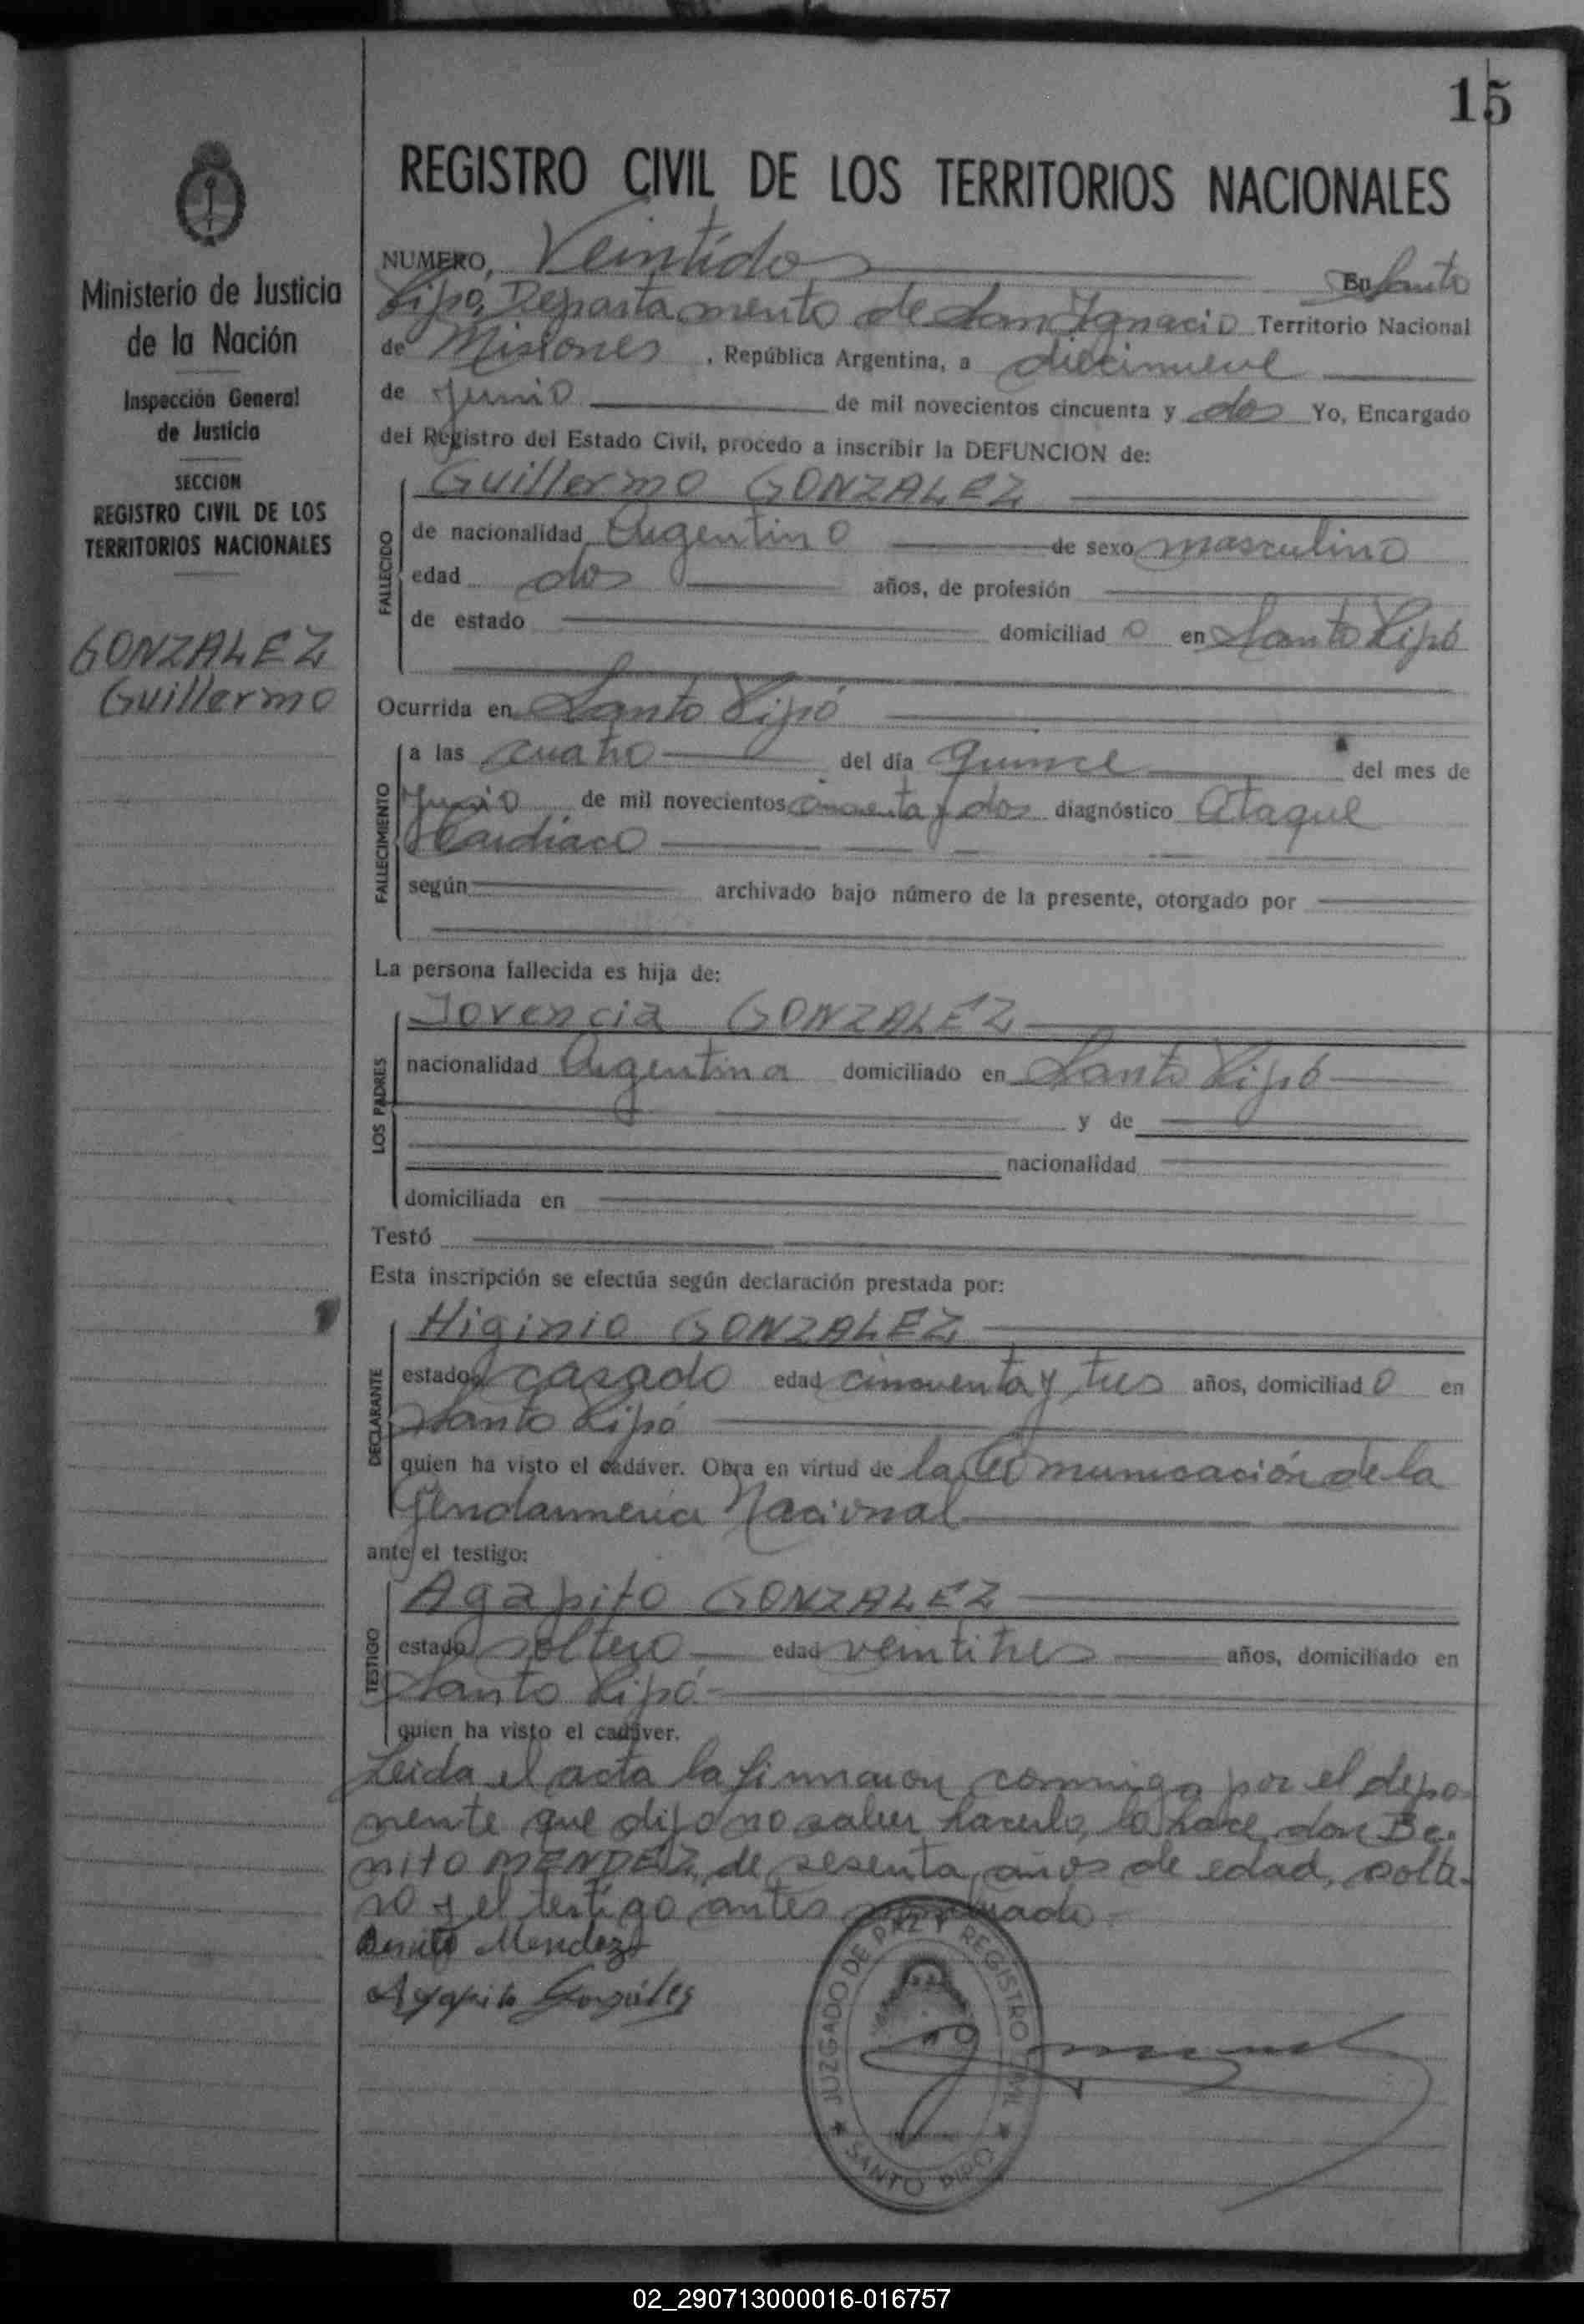 15
REGISTRO CIVIL DE LOS TERRITORIOS NACIONALES
Ministerio de Justicia
de la Nación
Inspección General
de Justicia
SECCION
REGISTRO CIVIL DE LOS
TERRITORIOS NACIONALES
GONZALEZ
Guillermo
NUMERO, Veintidos En Santo
Pipó, Departamento de San Ignacio Territorio Nacional
de Misiones, República Argentina, a diecinueve
de Junio de mil novecientos cincuenta y dos Yo, Encargado
del Registro del Estado Civil, procedo a inscribir la DEFUNCION de:
FALLECIDO
Guillermo GONZALEZ
de nacionalidad Argentino de sexo masculino
edad dos años, de profesión
de estado domiciliado en Santo Pipó
Ocurrida en Santo Pipó
FALLECIMIENTO
a las cuatro del día quince del mes de
Junio de mil novecientos cincuenta y dos diagnóstico Ataque
Cardiaco
según archivado bajo número de la presente, otorgado por
La persona fallecida es hija de:
LOS PADRES
Jovencia GONZALEZ
nacionalidad Argentina domiciliado en Santo Pipó
y de
nacionalidad
domiciliada en
Testó
Esta inscripción se efectúa según declaración prestada por:
DECLARANTE
Higinio GONZALEZ
estado casado edad cincuenta y tres años, domiciliado en
Santo Pipó
quien ha visto el cadáver. Obra en virtud de la Comunicación de la
Gendarmeria Nacional
ante el testigo:
TESTIGO
Agapito GONZALEZ
estado soltero edad veintitres años, domiciliado en
Santo Pipó
quien ha visto el cadáver.
Leida el acta la firmaron conmigo por el depo-
nente que dijo no saber hacerlo, lo hace don Be-
nito MENDEZ, de sesenta años de edad, solte-
ro y el testigo antes
Benito Mendez
Agapito González
JUZGADO DE PAZ Y REGISTRO CIVIL
SANTO PIPO
02_290713000016-016757